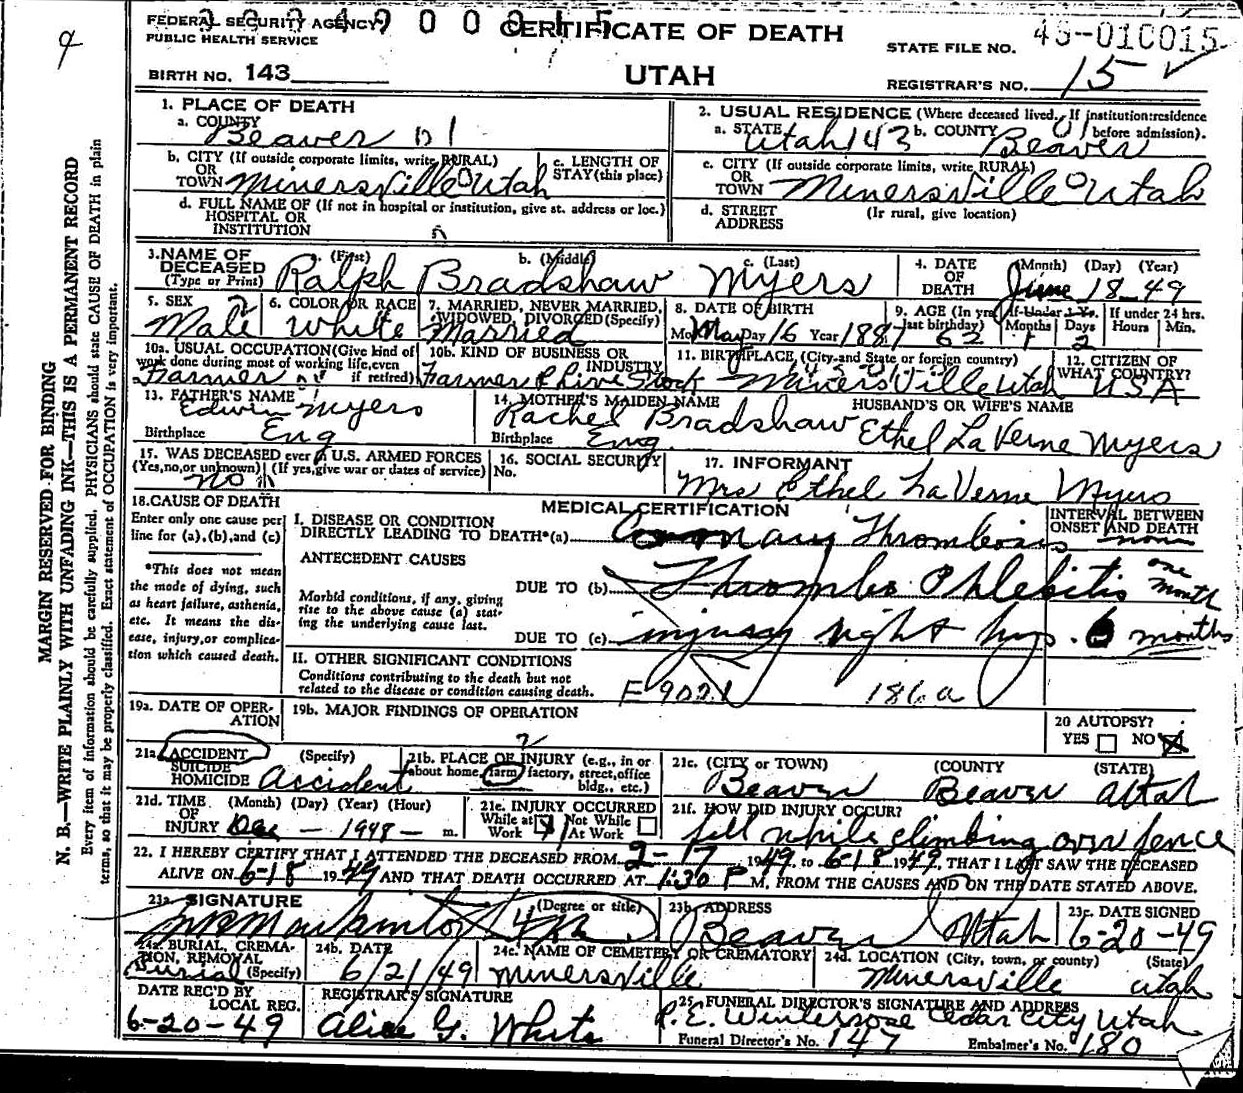 FEDERAL SECURITY AGENCY
PUBLIC HEALTH SERVICE
CERTIFICATE OF DEATH
STATE FILE NO. 49-010015
BIRTH NO. 143
UTAH
REGISTRAR'S NO. 15
1. PLACE OF DEATH
a. COUNTY
Beaver
2. USUAL RESIDENCE (Where deceased lived. If institution:residence before admission).
a. STATE Utah 143 b. COUNTY Beaver
b. CITY (If outside corporate limits, write RURAL)
OR
TOWN Minersville Utah
c. LENGTH OF
STAY (this place)
c. CITY (If outside corporate limits, write RURAL)
OR
TOWN Minersville Utah
d. FULL NAME OF (If not in hospital or institution, give st. address or loc.)
HOSPITAL OR
INSTITUTION
d. STREET (If rural, give location)
ADDRESS
3. NAME OF DECEASED (Type or Print)
a. (First) b. (Middle) c. (Last)
Ralph Bradshaw Myers
4. DATE OF DEATH (Month) (Day) (Year)
June 18-49
5. SEX
Male
6. COLOR OR RACE
White
7. MARRIED, NEVER MARRIED, WIDOWED, DIVORCED (Specify)
Married
8. DATE OF BIRTH
Mo. May Day 16 Year 1887
9. AGE (In yrs last birthday) 62
If Under 1 Yr. Months 1 Days 2
If under 24 hrs. Hours Min.
10a. USUAL OCCUPATION (Give kind of work done during most of working life, even if retired)
Farmer
10b. KIND OF BUSINESS OR INDUSTRY
Farmer & Live Stock
11. BIRTHPLACE (City and State or foreign country)
Minersville Utah
12. CITIZEN OF WHAT COUNTRY?
USA
13. FATHER'S NAME
Edwin Myers
Birthplace Eng
14. MOTHER'S MAIDEN NAME
Rachel Bradshaw
Birthplace Eng
HUSBAND'S OR WIFE'S NAME
Ethel LaVerne Myers
15. WAS DECEASED ever in U.S. ARMED FORCES
(Yes, no, or unknown) (If yes, give war or dates of service)
No
16. SOCIAL SECURITY
No.
17. INFORMANT
Mrs Ethel LaVerne Myers
18. CAUSE OF DEATH
Enter only one cause per line for (a), (b), and (c)
*This does not mean the mode of dying, such as heart failure, asthenia, etc. It means the disease, injury, or complication which caused death.
MEDICAL CERTIFICATION
INTERVAL BETWEEN ONSET AND DEATH
I. DISEASE OR CONDITION
DIRECTLY LEADING TO DEATH*(a) Coronary Thrombosis
ANTECEDENT CAUSES
Morbid conditions, if any, giving rise to the above cause (a) stating the underlying cause last.
DUE TO (b) Thrombo Phlebitis one month
DUE TO (c) injury right hip. 6 months
II. OTHER SIGNIFICANT CONDITIONS
Conditions contributing to the death but not related to the disease or condition causing death.
E 902.1 186a
19a. DATE OF OPERATION
19b. MAJOR FINDINGS OF OPERATION
20 AUTOPSY?
YES NO X
21a. ACCIDENT (Specify)
SUICIDE
HOMICIDE Accident
21b. PLACE OF INJURY (e.g., in or about home, farm, factory, street, office bldg., etc.)
21c. (CITY or TOWN) (COUNTY (STATE)
Beaver Beaver Utah
21d. TIME (Month) (Day) (Year) (Hour)
OF
INJURY Dec - 1948 - m.
21e. INJURY OCCURRED
While at Work Not While At Work
21f. HOW DID INJURY OCCUR?
fell while climbing over fence
22. I HEREBY CERTIFY THAT I ATTENDED THE DECEASED FROM 2-17 1949, to 6-18 1949, THAT I LAST SAW THE DECEASED
ALIVE ON 6-18 1949 AND THAT DEATH OCCURRED AT 1:30 P M, FROM THE CAUSES AND ON THE DATE STATED ABOVE.
23a. SIGNATURE (Degree or title)
23b. ADDRESS
Beaver Utah
23c. DATE SIGNED
6-20-49
24a. BURIAL, CREMATION, REMOVAL
Burial (Specify)
24b. DATE
6/21/49
24c. NAME OF CEMETERY OR CREMATORY
Minersville
24d. LOCATION (City, town, or county) (State)
Minersville Utah
DATE REC'D BY LOCAL REG.
6-20-49
REGISTRAR'S SIGNATURE
Alice G. White
25. FUNERAL DIRECTOR'S SIGNATURE AND ADDRESS
Cedar City Utah
Funeral Director's No. 147 Embalmer's No. 180
MARGIN RESERVED FOR BINDING
N. B.—WRITE PLAINLY WITH UNFADING INK—THIS IS A PERMANENT RECORD
Every item of information should be carefully supplied. PHYSICIANS should state CAUSE OF DEATH in plain
terms, so that it may be properly classified. Exact statement of OCCUPATION is very important.